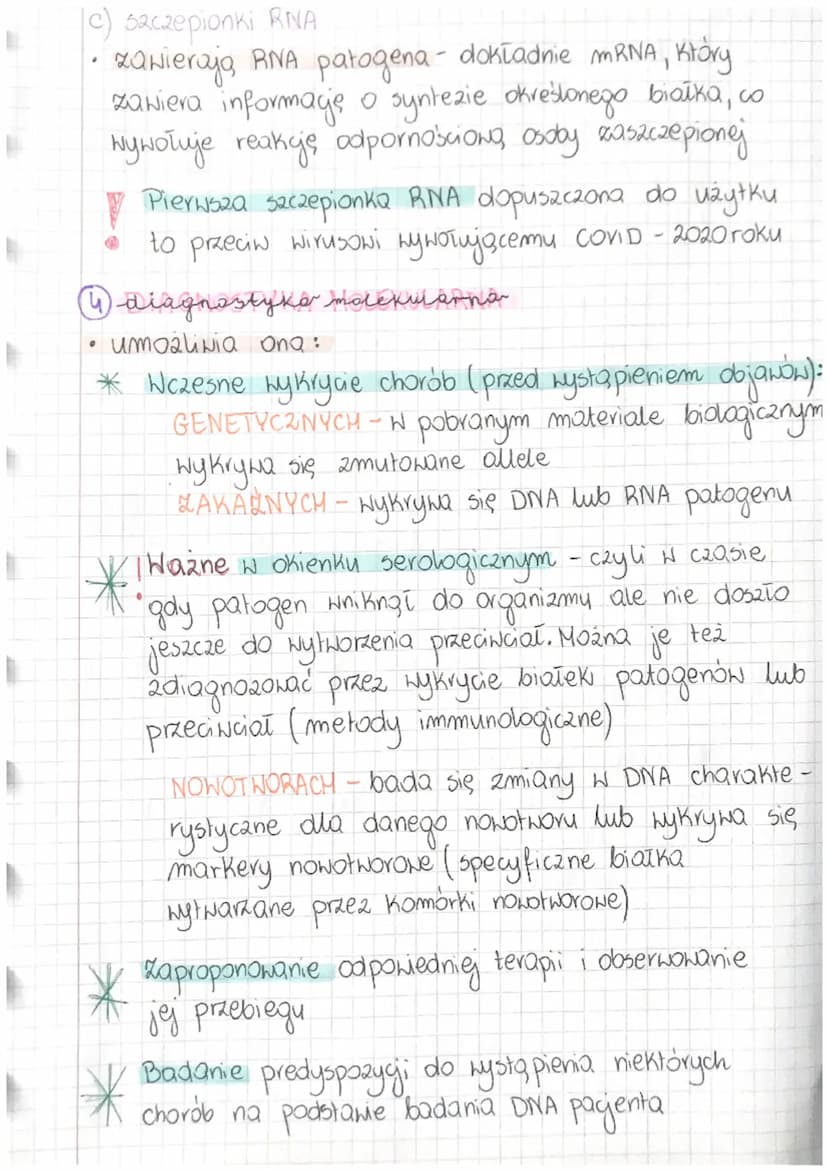 c) szczepionki RNA
• zawierają RNA patogena - dokładnie mRNA, który
zawiera informację o syntezie określonego białka, co
wywołuje reakcję odpornościową osoby zaszczepionej
! Pierwsza szczepionka RNA dopuszczona do użytku
to przeciw wirusowi wywołującemu COVID - 2020 roku
4 diagnostyka molekularna
• umożliwia ona:
* Wczesne wykrycie chorób (przed wystąpieniem objawów):
GENETYCZNYCH - w pobranym materiale biologicznym
wykrywa się zmutowane allele
ZAKAŹNYCH - wykrywa się DNA lub RNA patogenu
* ! Ważne w okienku serologicznym - czyli w czasie
gdy patogen wniknął do organizmu ale nie doszło
jeszcze do wytworzenia przeciwciał. Można je też
zdiagnozować przez wykrycie białek patogenów lub
przeciwciał (metody immunologiczne)
NOWOTWORACH - bada się zmiany w DNA charakte-
rystyczne dla danego nowotworu lub wykrywa się
markery nowotworowe (specyficzne białka
wytwarzane przez komórki nowotworowe)
* Zaproponowanie odpowiedniej terapii i obserwowanie
jej przebiegu
* Badanie predyspozycji do wystąpienia niektórych
chorób na podstawie badania DNA pacjenta